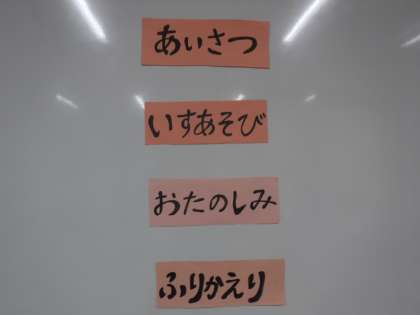 あいさつ
いすあそび
おたのしみ
ふりかえり